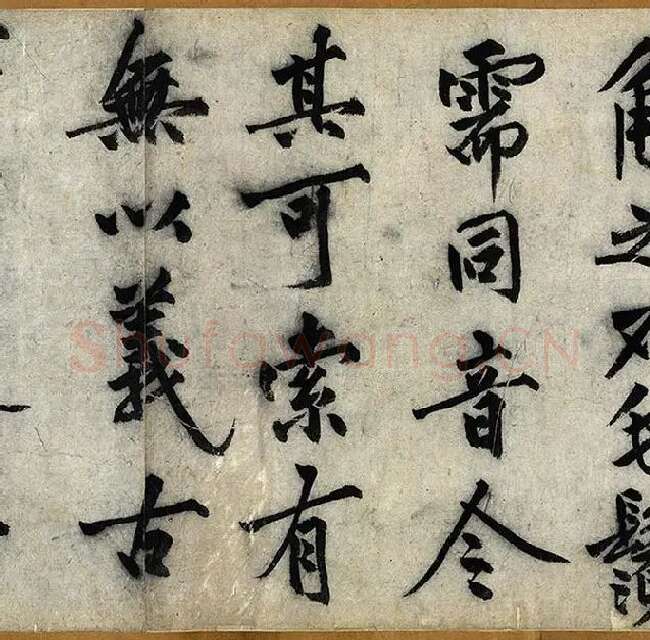 之不我
需同音今
其可索有
無以義古
Shufawang.CN